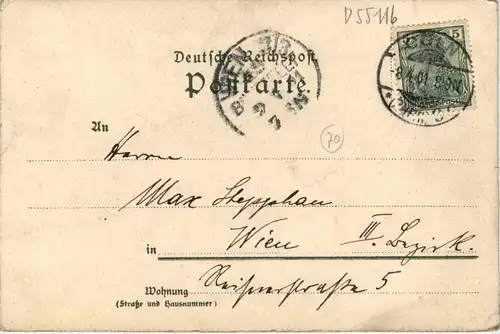 D55116
Deutsche Reichspost
Postkarte.
5
8.4.01
70
An
Herrn
Max Stepphan
in Wien III. Bezirk.
Wohnung
(Straße und Hausnummer)
Reisnerstraße 5